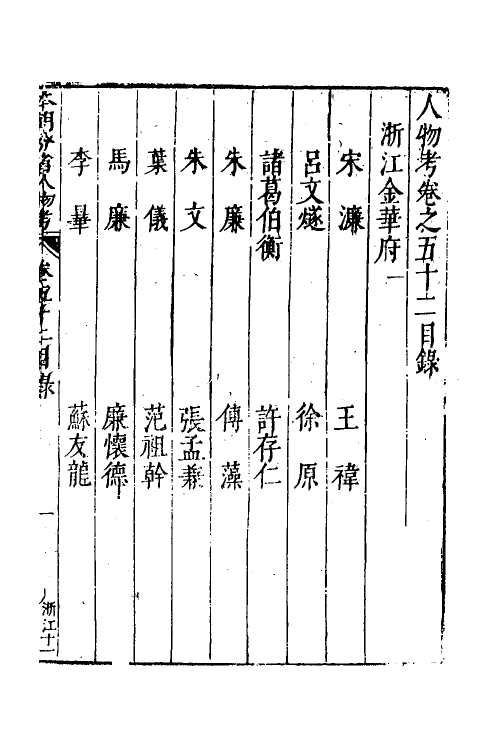 人物考卷之五十二目錄
浙江金華府一
宋濂 王禕
呂文燧 徐原
諸葛伯衡 許存仁
朱廉 傅藻
朱文 張孟兼
葉儀 范祖幹
馬廉 廉懷德
李畢 蘇友龍
本朝分省人物考 卷五十二目錄 一 浙江十一